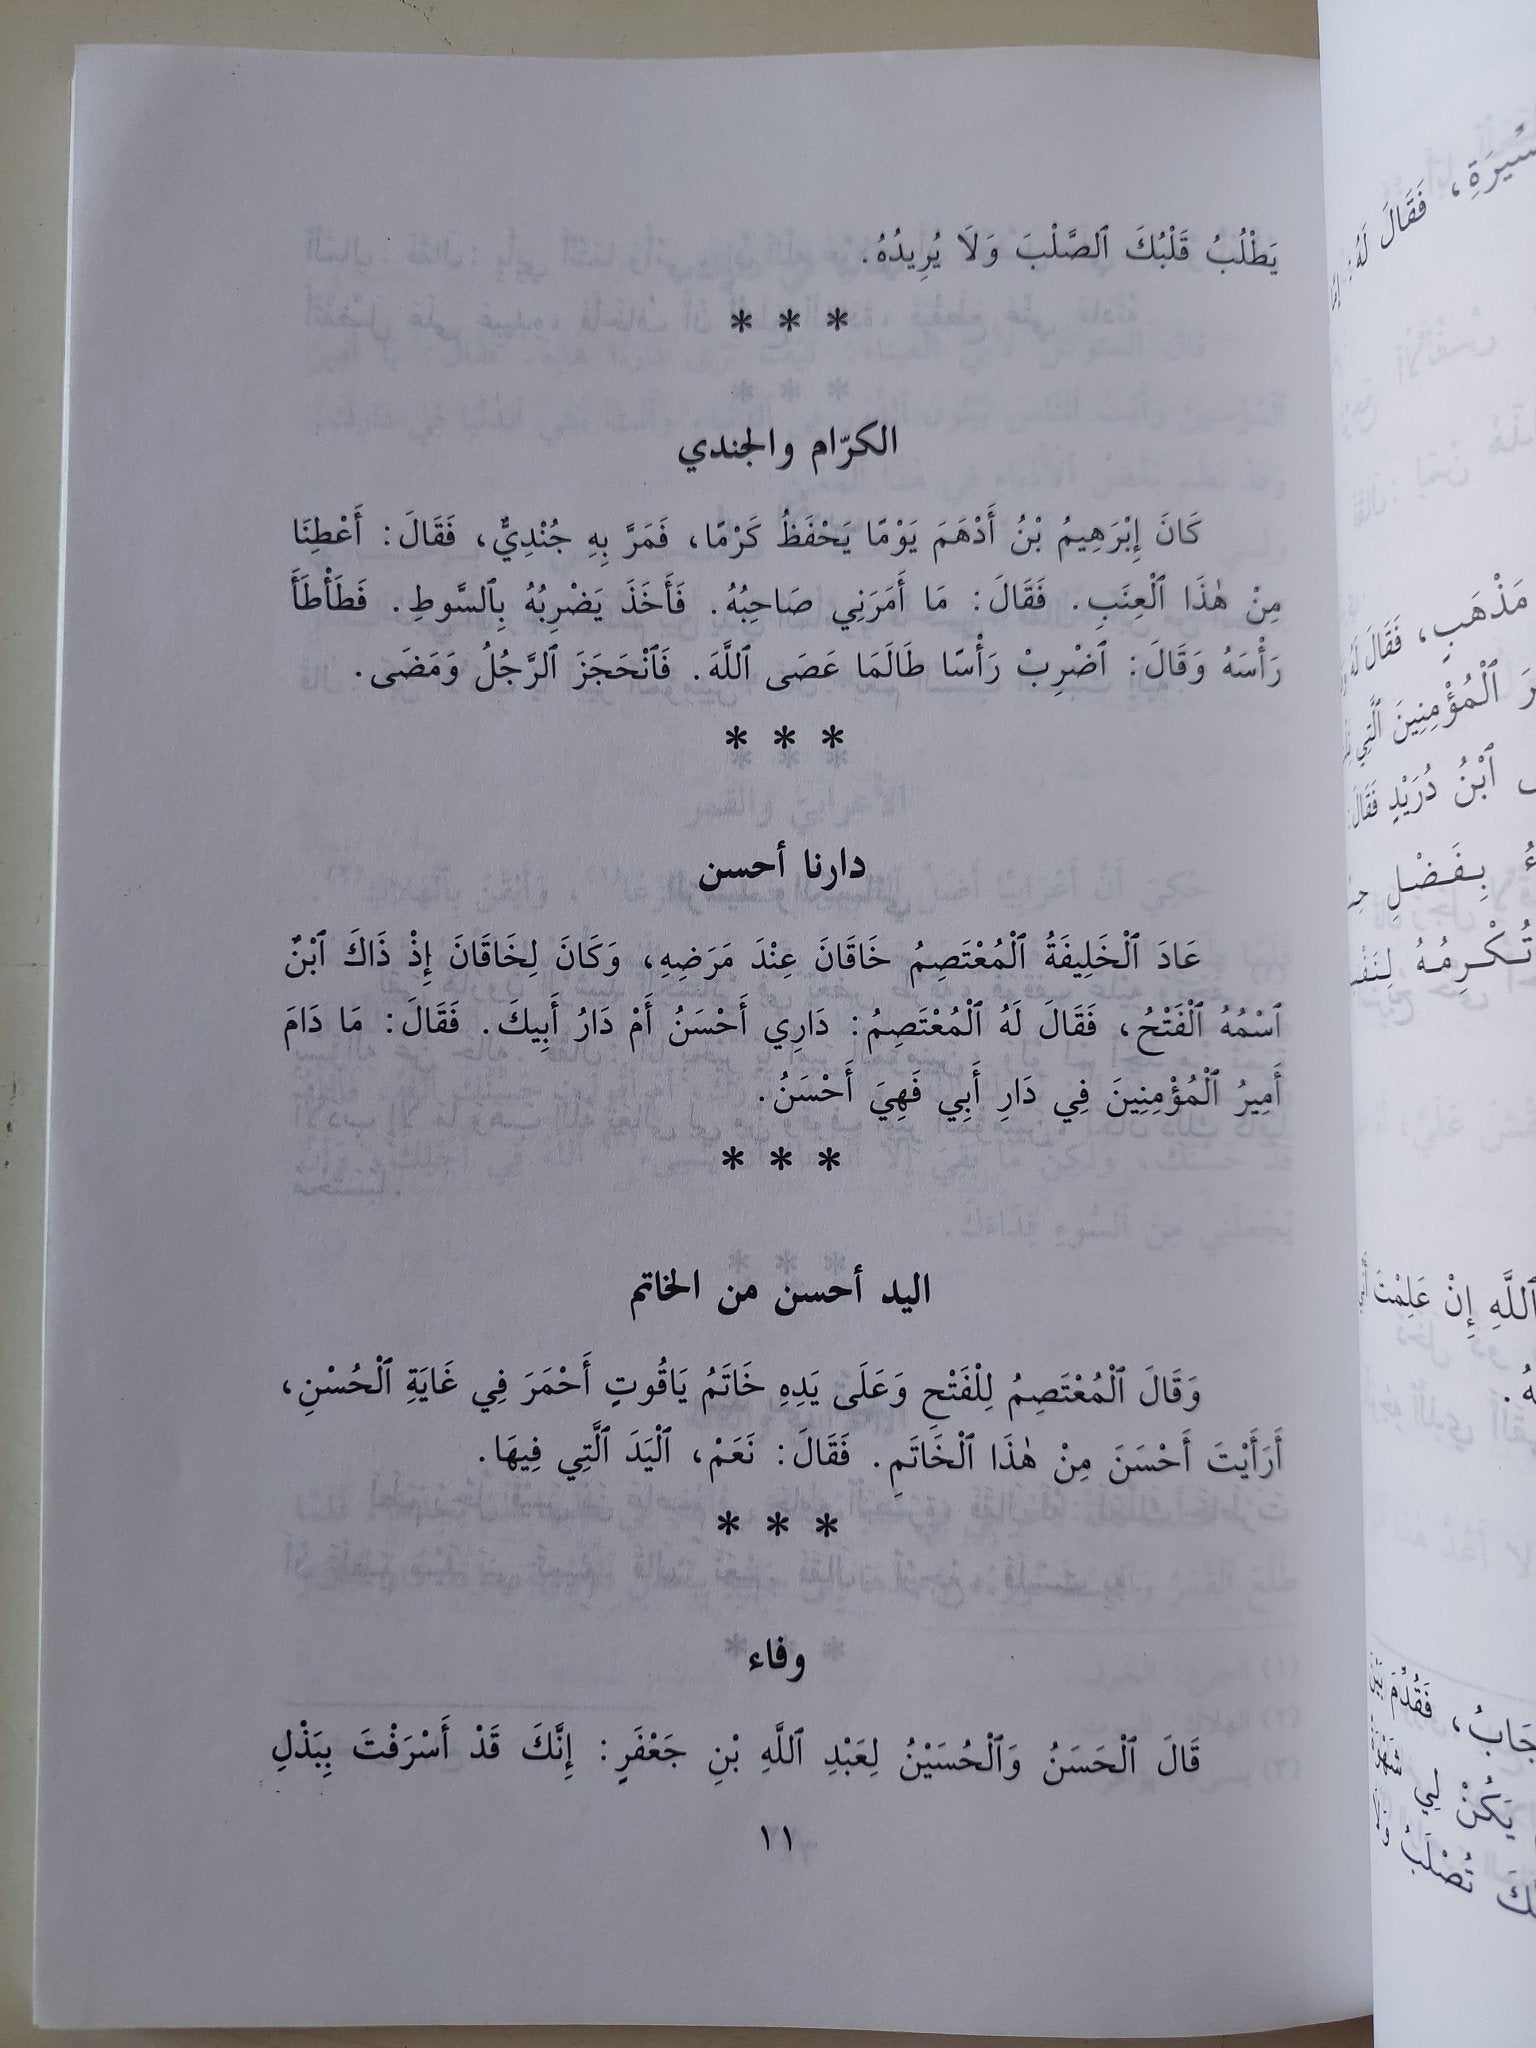 يَطْلُبُ قَلْبُكَ ٱلصَّلْبَ وَلَا يُرِيدُهُ.
* * *
الكرّام والجندي
كَانَ إِبْرَهِيمُ بْنُ أَدْهَمَ يَوْمًا يَحْفَظُ كَرْمًا، فَمَرَّ بِهِ جُنْدِيٌّ، فَقَالَ: أَعْطِنَا
مِنْ هٰذَا ٱلْعِنَبِ. فَقَالَ: مَا أَمَرَنِي صَاحِبُهُ. فَأَخَذَ يَضْرِبُهُ بِٱلسَّوطِ. فَطَأْطَأَ
رَأْسَهُ وَقَالَ: ٱضْرِبْ رَأْسًا طَالَمَا عَصَى ٱللَّهَ. فَٱنْحَجَزَ ٱلرَّجُلُ وَمَضَى.
* * *
دارنا أحسن
عَادَ ٱلْخَلِيفَةُ ٱلْمُعْتَصِمُ خَاقَانَ عِنْدَ مَرَضِهِ، وَكَانَ لِخَاقَانَ إِذْ ذَاكَ ٱبْنٌ
ٱسْمُهُ ٱلْفَتْحُ، فَقَالَ لَهُ ٱلْمُعْتَصِمُ: دَارِي أَحْسَنُ أَمْ دَارُ أَبِيكَ. فَقَالَ: مَا دَامَ
أَمِيرُ ٱلْمُؤْمِنِينَ فِي دَارِ أَبِي فَهِيَ أَحْسَنُ.
* * *
اليد أحسن من الخاتم
وَقَالَ ٱلْمُعْتَصِمُ لِلْفَتْحِ وَعَلَى يَدِهِ خَاتَمُ يَاقُوتٍ أَحْمَرَ فِي غَايَةِ ٱلْحُسْنِ،
أَرَأَيْتَ أَحْسَنَ مِنْ هٰذَا ٱلْخَاتَمِ. فَقَالَ: نَعَمْ، ٱلْيَدَ ٱلَّتِي فِيهَا.
* * *
وفاء
قَالَ ٱلْحَسَنُ وَٱلْحُسَيْنُ لِعَبْدِ ٱللَّهِ بْنِ جَعْفَرٍ: إِنَّكَ قَدْ أَسْرَفْتَ بِبَذْلِ
١١
فَقَالَ لَهُ:
مَذْهَبٍ، فَقَالَ لَهُ
ٱلْمُؤْمِنِينَ ٱلَّتِي
ٱبْنُ دُرَيْدٍ فَقَالَ:
بِفَضْلِ
تُكْرِمُهُ
ٱللَّهِ إِنْ عَلِمْتَ
فَقُدِّمَ
يَكُنْ لِي
تُصْلَبُ